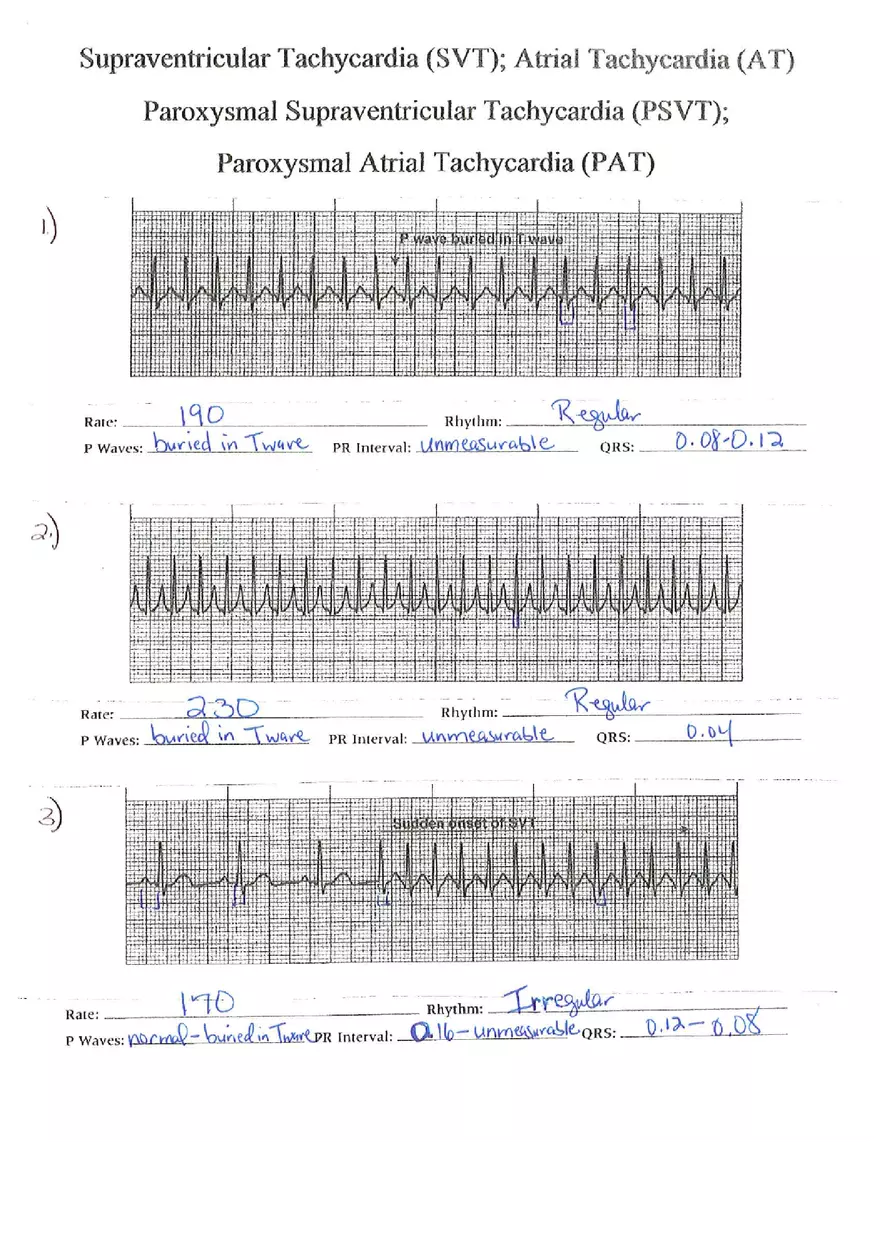 Supraventricular Tachycardia (SVT); Atrial Tachycardia (AT)
Paroxysmal Supraventricular Tachycardia (PSVT);
Paroxysmal Atrial Tachycardia (PAT)
1.)
P wave buried in T wave
Rate: 190 Rhythm: Regular
P Waves: buried in T wave PR Interval: unmeasurable QRS: 0.08-0.12
2.)
Rate: 230 Rhythm: Regular
P Waves: buried in T wave PR Interval: unmeasurable QRS: 0.04
3)
Sudden onset of SVT
Rate: 170 Rhythm: Irregular
P Waves: normal - buried in T wave PR Interval: 0.16 - unmeasurable QRS: 0.12 - 0.08